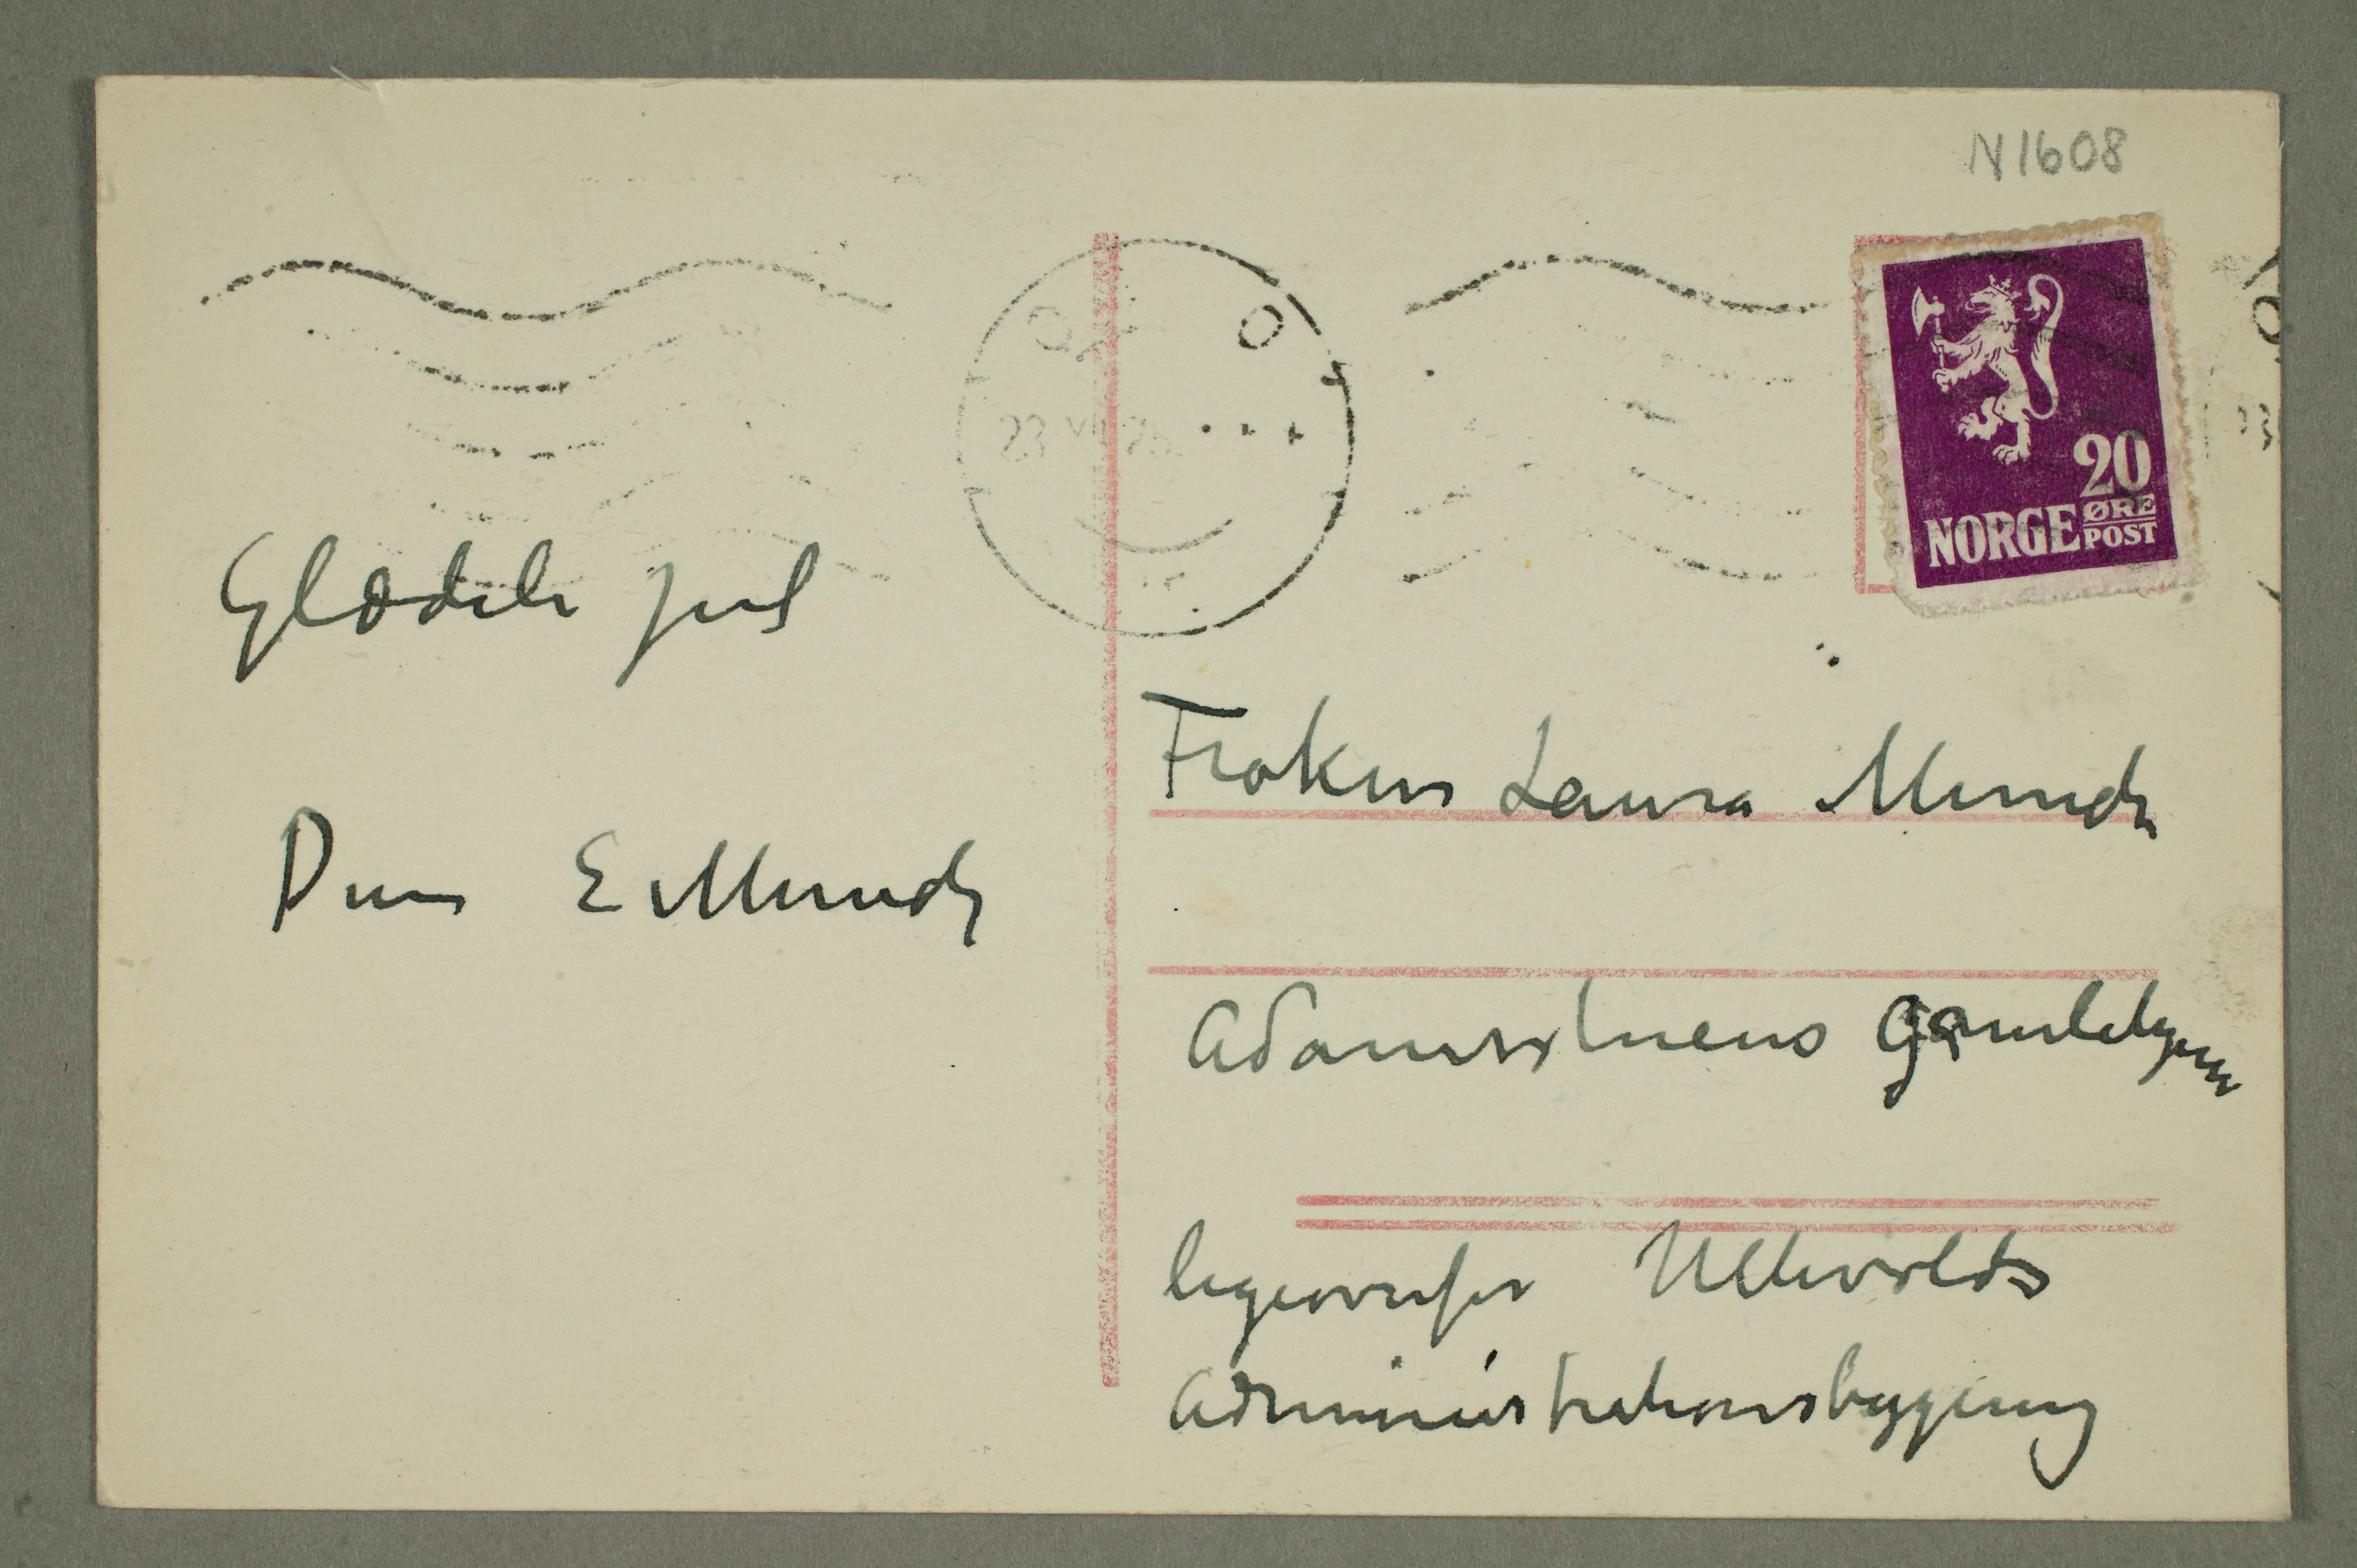 N 1608
OSLO
20
NORGE ØRE
POST
Glædeli jul
Din E Munch
Frøken Laura Munch
Adamstuens Gamlehjem
ligeoverfor Ullevolds
Administrationsbygning